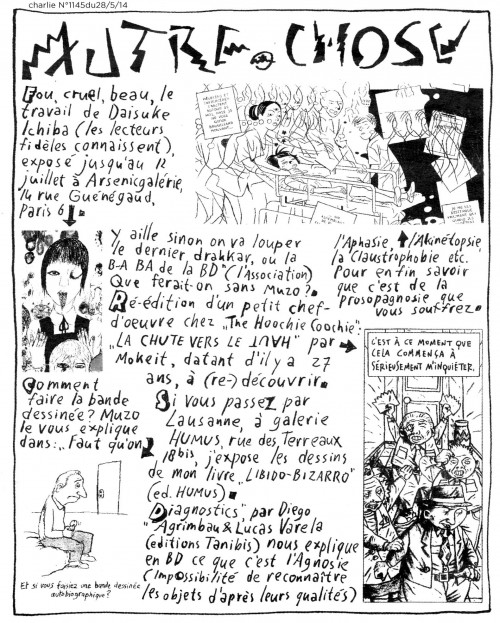 charlie N°1145du28/5/14
AUTRE CHOSE
Fou, cruel, beau, le
travail de Daisuke
Ichiba (les lecteurs
fidèles connaissent),
exposé jusqu'au 12
juillet à Arsenicgalérie,
14 rue Guénégaud,
Paris 6
Comment
faire la bande
dessinée? Muzo
le vous explique
dans: "Faut qu'on
Y aille sinon on va louper
le dernier drakkar, ou la
B-A BA de la BD" (l'Association)
Que ferait-on sans Muzo?
Ré-édition d'un petit chef-
d'oeuvre chez "The Hoochie Coochie":
"LA CHUTE VERS LE" par
Mokeït, datant d'il y a 27
ans, à (re-) découvrir.
Si vous passez par
Lausanne, à galerie
HUMUS, rue des Terreaux
18bis, j'expose les dessins
de mon livre "LIBIDO-BIZARRO"
(ed. HUMUS)
"Diagnostics" par Diego
Agrimbau & Lucas Varela
(editions Tanibis) nous explique
en BD ce que c'est l'Agnosie
(Impossibilité de reconnaître
les objets d'après leurs qualités)
l'Aphasie, l'Akinétopsie,
la Claustrophobie etc.
Pour enfin savoir
que c'est de la
prosopagnosie que
vous souffrez.
C'EST À CE MOMENT QUE
CELA COMMENÇA À
SÉRIEUSEMENT M'INQUIÉTER.
Et si vous faisiez une bande dessinée
autobiographique?